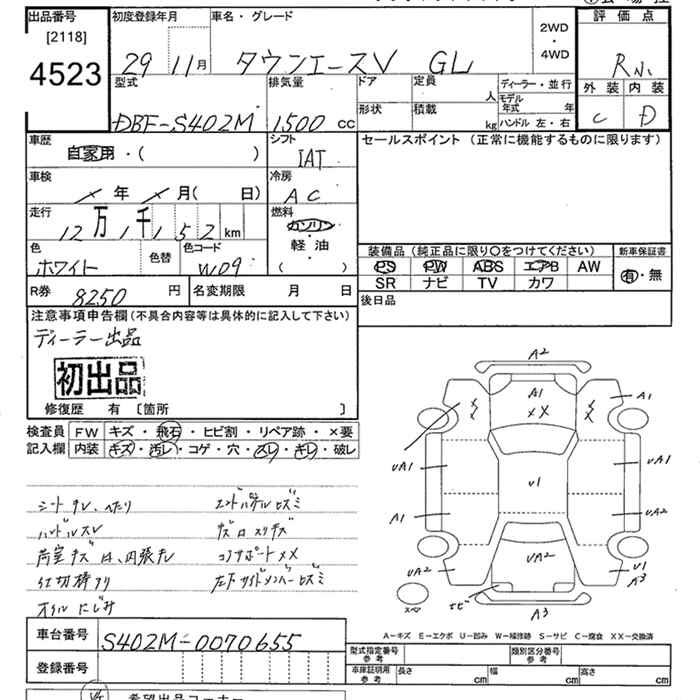 出品番号
[2118]
4523
初度登録年月
29 11月
車名・グレード
タウンエースV GL
2WD
・
4WD
評価点
R
外装 内装
C D
型式
DBF-S402M
排気量
1500 cc
ドア
定員
人
ディーラー・並行
モデル年式 年
形状
積載
kg
ハンドル 左・右
車歴
自家用・( )
シフト
IAT
セールスポイント (正常に機能するものに限ります)
車検
年 月( 日)
冷房
AC
走行
12万1千152km
燃料
ガソリン
・
軽油
( )
色
ホワイト
色替
色コード
W09
装備品(純正品に限り○をつけてください)
PS PW ABS エアB AW
SR ナビ TV カワ
新車保証書
有・無
R券
8250円
名変期限 月 日
後日品
注意事項申告欄(不具合内容等は具体的に記入して下さい)
ディーラー出品
初出品
修復歴 有 [箇所 ]
検査員 FW キズ・飛石・ヒビ割・リペア跡・×要
記入欄 内装 キズ・汚レ・コゲ・穴・スレ・キレ・破レ
シート ヘたり
ハンドルスレ
荷室キズ
オイルにじみ
エンドパネルヒズミ
コアサポートXX
左下サイドメンバーヒズミ
A2
A1
XX
A1
UA1
UA1
U1
A1
UA2
UA2
UA2
U1
A3
サビ
A3
スペア
A-キズ E-エクボ U-凹み W-補修跡 S-サビ C-腐食 XX-交換済
車台番号
S402M-0070655
型式指定番号
参考
類別区分番号
参考
登録番号
車庫証明用
参考
長さ cm
幅 cm
高さ cm
希望出品コーナー